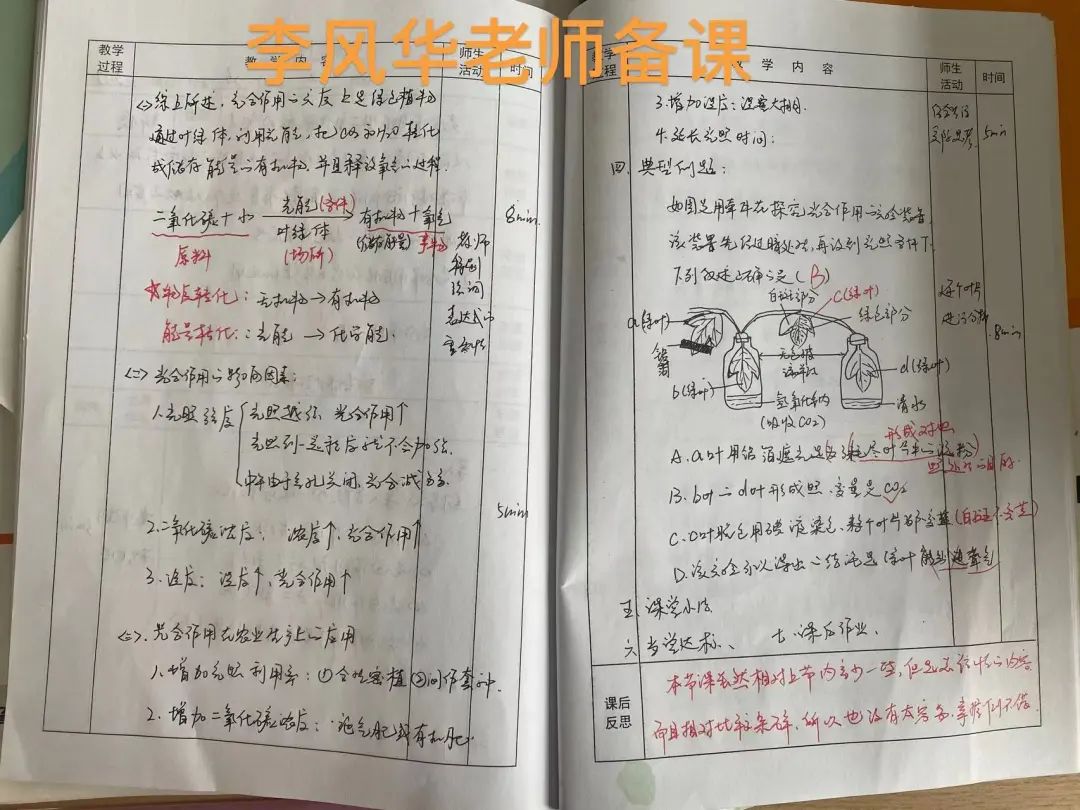 李风华老师备课
教学过程 教学内容 师生活动 时间
综上所述，光合作用的实质上是绿色植物
通过叶绿体，利用光能，把CO2和H2O转化
成储存能量的有机物，并且释放氧气的过程.
二氧化碳+水 光能(条件) 叶绿体(场所) 有机物+氧气
原料 (储存能量) 产物
8min
教师
物质转化：无机物→有机物
能量转化：光能→化学能；
表达式的
重要性
(二)光合作用的影响因素：
1.光照强度 光照越强 光合作用↑
光照到一定程度后就不会加强.
中午由于气孔关闭，光合减弱.
5min
2.二氧化碳浓度：浓度↑，光合作用↑
3.温度：温度↑，光合作用↑
(三).光合作用在农业生产上的应用
1.增加光照利用率：①合理密植②间作套种.
2.增加二氧化碳浓度：施气肥或有机肥.
教学过程 教学内容 师生活动 时间
3.增加温度：温室大棚.
4.延长光照时间：
5min
四.典型例题：
如图是用牵牛花探究光合作用的实验装置
该装置先经过暗处理，再放到光照条件下.
下列叙述正确的是(B)
白斑部分 c(绿叶) 绿色部分
a(绿叶)
铝箔
无色玻璃
b(绿叶) d(绿叶)
氢氧化钠 清水
(吸收CO2)
逐个叶片
进行分析
8min
形成对照
A.a叶用铝箔遮光是为了耗尽叶片中的淀粉
B.b叶与d叶形成对照，变量是CO2
C.c叶脱色用碘液染色，整个叶片都不变蓝(白斑不变蓝)
D.该实验可以得出的结论是绿叶能制造氧气
五.课堂小结
六.当堂达标、 七.课后作业.
课后反思
本节课虽然相对上节内容少一些，但也是很核心内容
而且相对比较条碎，所以也没有太容易，掌握倒不错.